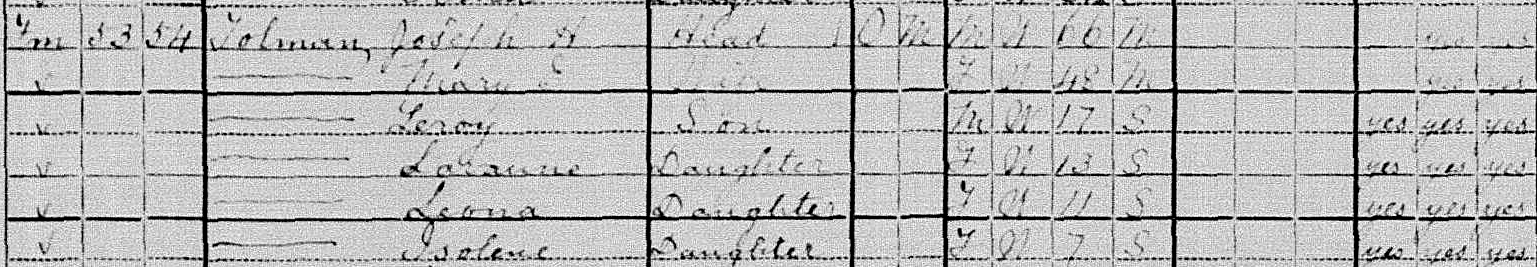 Fm 53 54 Tolman, Joseph H Head O M M W 66 M yes yes
Mary E Wife F W 48 M yes yes
Leroy Son M W 17 S yes yes yes
Loranne Daughter F W 13 S yes yes yes
Leona Daughter F W 11 S yes yes yes
Isolene Daughter F W 7 S yes yes yes